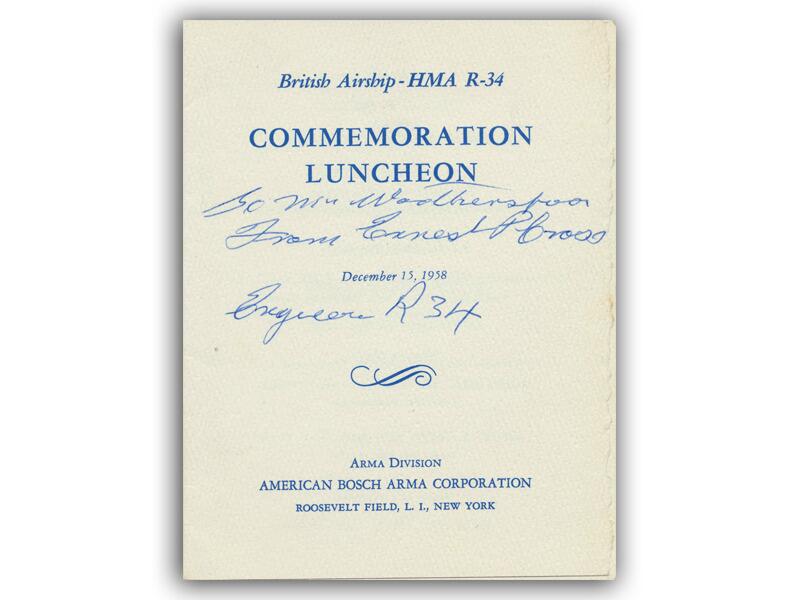 British Airship - HMA R-34
COMMEMORATION
LUNCHEON
To Mr Wodherspoon
From Ernest P Cross
December 15, 1958
Engineer R 34
ARMA DIVISION
AMERICAN BOSCH ARMA CORPORATION
ROOSEVELT FIELD, L. I., NEW YORK